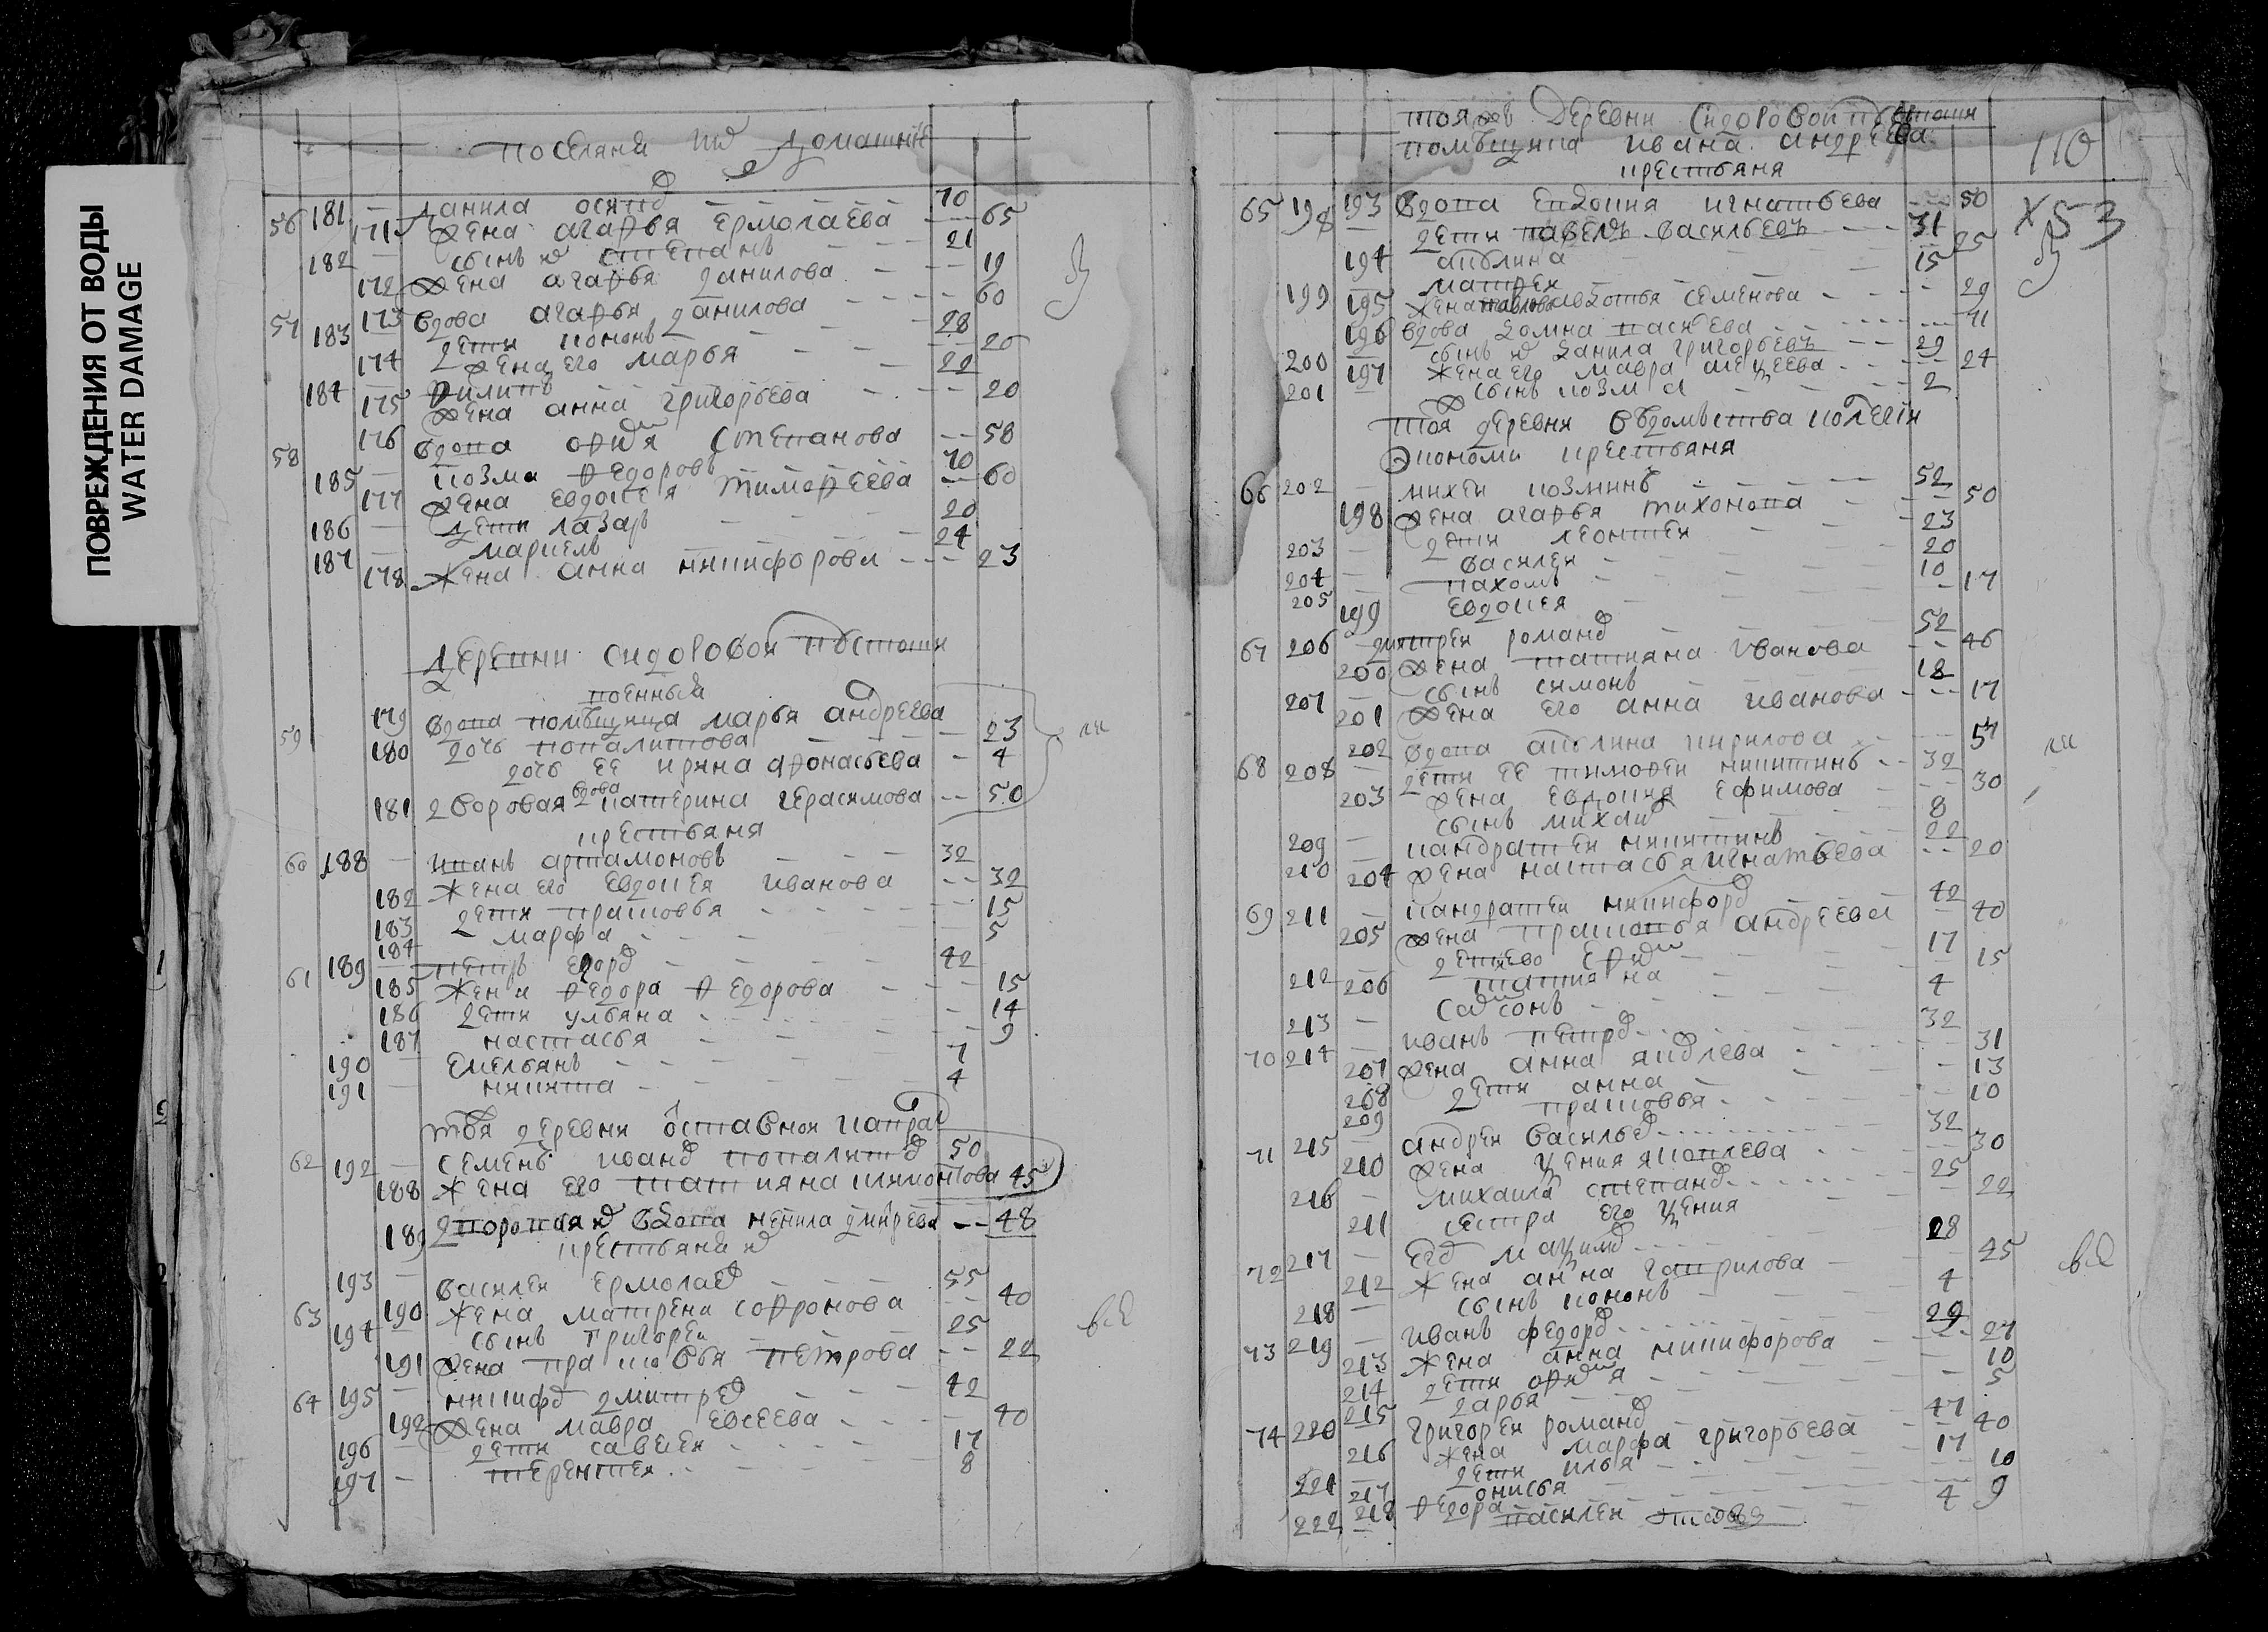 ПОВРЕЖДЕНИЯ ОТ ВОДЫ
WATER DAMAGE
поселяня домашнія
56 181 — данила осип 70
171 жена агафья ермолаева — 65
182 — сынъ степанъ — 21
172 жена агафья данилова — 19
57 173 вдова агафья данилова — 60
183 — дети кононъ — 28
174 жена его марья — 20
184 — филипъ — 29
175 жена анна григорьева — 20
58 176 вдова офи степанова — 58
185 — козма федоровъ 70
177 жена евдокея тимофеева — 60
186 — дети лазарь 20
187 — маркелъ — 24
178 жена анна никифорова — 23
деревни сидоровой
59 179 вдова помѣщица марья андреева
180 дочь 23
дочь ее ирина афонасьева — 4
181 дворовая вдова катерина герасимова — 50
крестьяня
60 188 — иванъ артамоновъ 32
182 жена его евдокея иванова — 32
183 дети прасковья — 15
184 марфа — 5
61 189 — петръ егор 42
185 жена федора федорова — 15
186 дети ульяна — 14
187 настасья — 9
190 — емельянъ — 7
191 — никита — 4
тоя деревни отставной капрал
62 192 — семенъ иван 50
188 жена его татияна 45
189 вдова ненила — 48
крестьяня
63 193 — василеи ермолае 55
190 жена матрена софронова — 40
194 — сынъ григореи 25
191 жена прасковья петрова — 22
64 195 — никифо дмитре 42
192 жена мавра евсеева — 40
196 дети савелеи — 17
197 — терентеи — 8
тояже деревни сидоровой
помѣщика ивана андреева
крестьяня
110
х 53
65 193 вдова евдокия игнатьева — 50
198 — дети павелъ васильевъ — 31
194 акулина — 25
199 матфеи — 15
195 жена семенова — 29
196 вдова домна — 71
200 — сынъ данила григорьевъ — 29
197 жена его мавра — 24
201 — сынъ козма — 2
тоя деревни ведомъства колегии
экономи крестьяня
66 202 — михеи козминъ — 52
198 жена агафья тихонова — 50
203 — дети леонтеи — 23
204 — василеи — 20
205 — пахомъ — 10
199 евдокея — 17
67 206 — дмитреи роман 52
200 жена татияна иванова — 46
207 — сынъ симонъ 18
201 жена его анна иванова — 17
68 202 вдова акулина кирилова — 57
208 — дети ее тимофеи никитинъ — 32
203 жена евдокия ефимова — 30
сынъ михаи 8
209 — кандратеи никитинъ — 22
210 204 жена настасья игнатьева — 20
69 211 — кандратеи никифор 42
205 жена прасковья андреева — 40
212 17
206 татияна — 15
213 — самсонъ — 4
70 214 — иванъ петр 32
207 жена анна яковлева — 31
208 дети анна — 13
209 прасковья — 10
71 215 — андреи василье 32
210 жена яковлева — 30
216 — михаила степан 25
211 сестра его — 22
72 217 — 28
212 жена анна гаврилова — 45
218 — сынъ кононъ 4
73 219 — иванъ федор 29
213 жена анна никифорова — 27
214 дети — 10
215 дарья — 5
74 220 григореи роман 47
216 жена марфа григорьева — 40
221 дети илья — 17
217 онисья — 10
218 федора — 9
222 — василеи 4